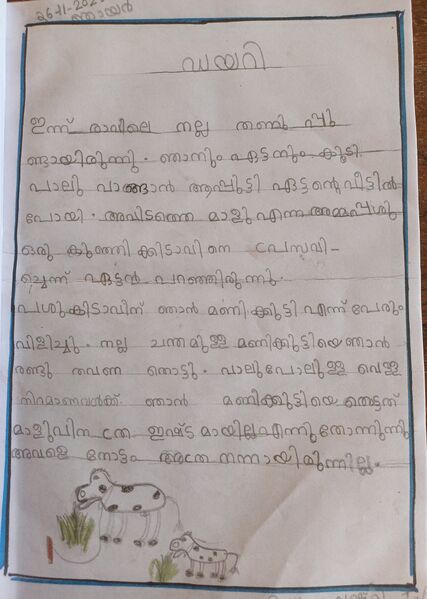 26-11-202
ഞായർ
ഡയറി
ഇന്ന് രാവിലെ നല്ല തണു പ്പു
ണ്ടായിരുന്നു. ഞാനും ഏട്ടനും കൂടി
പാലു വാങ്ങാൻ ആഷൂട്ടി ഏട്ടന്റെ വീട്ടിൽ
പോയി. അവിടത്തെ മാളു എന്ന അമ്മപശു
ഒരു കുഞ്ഞി ക്കിടാവി നെ പ്രസവി-
ച്ചെന്ന് ഏട്ടൻ പറഞ്ഞിരുന്നു.
പശുക്കിടാവിന് ഞാൻ മണിക്കുട്ടി എന്ന് പേരും
വിളിച്ചു. നല്ല ചന്തമുള്ള മണിക്കുട്ടിയെ ഞാൻ
രണ്ടു തവണ തൊട്ടു. പാലുപോലുള്ള വെള്ള
നിറമാണവൾക്ക് ഞാൻ മണിക്കുട്ടിയെ തൊട്ടത്
മാളുവിന ത്ര ഇഷ്ട മായില്ല എന്നു തോന്നുന്നു
അവളെ നോട്ടം അത്ര നന്നായിരുന്നില്ല.